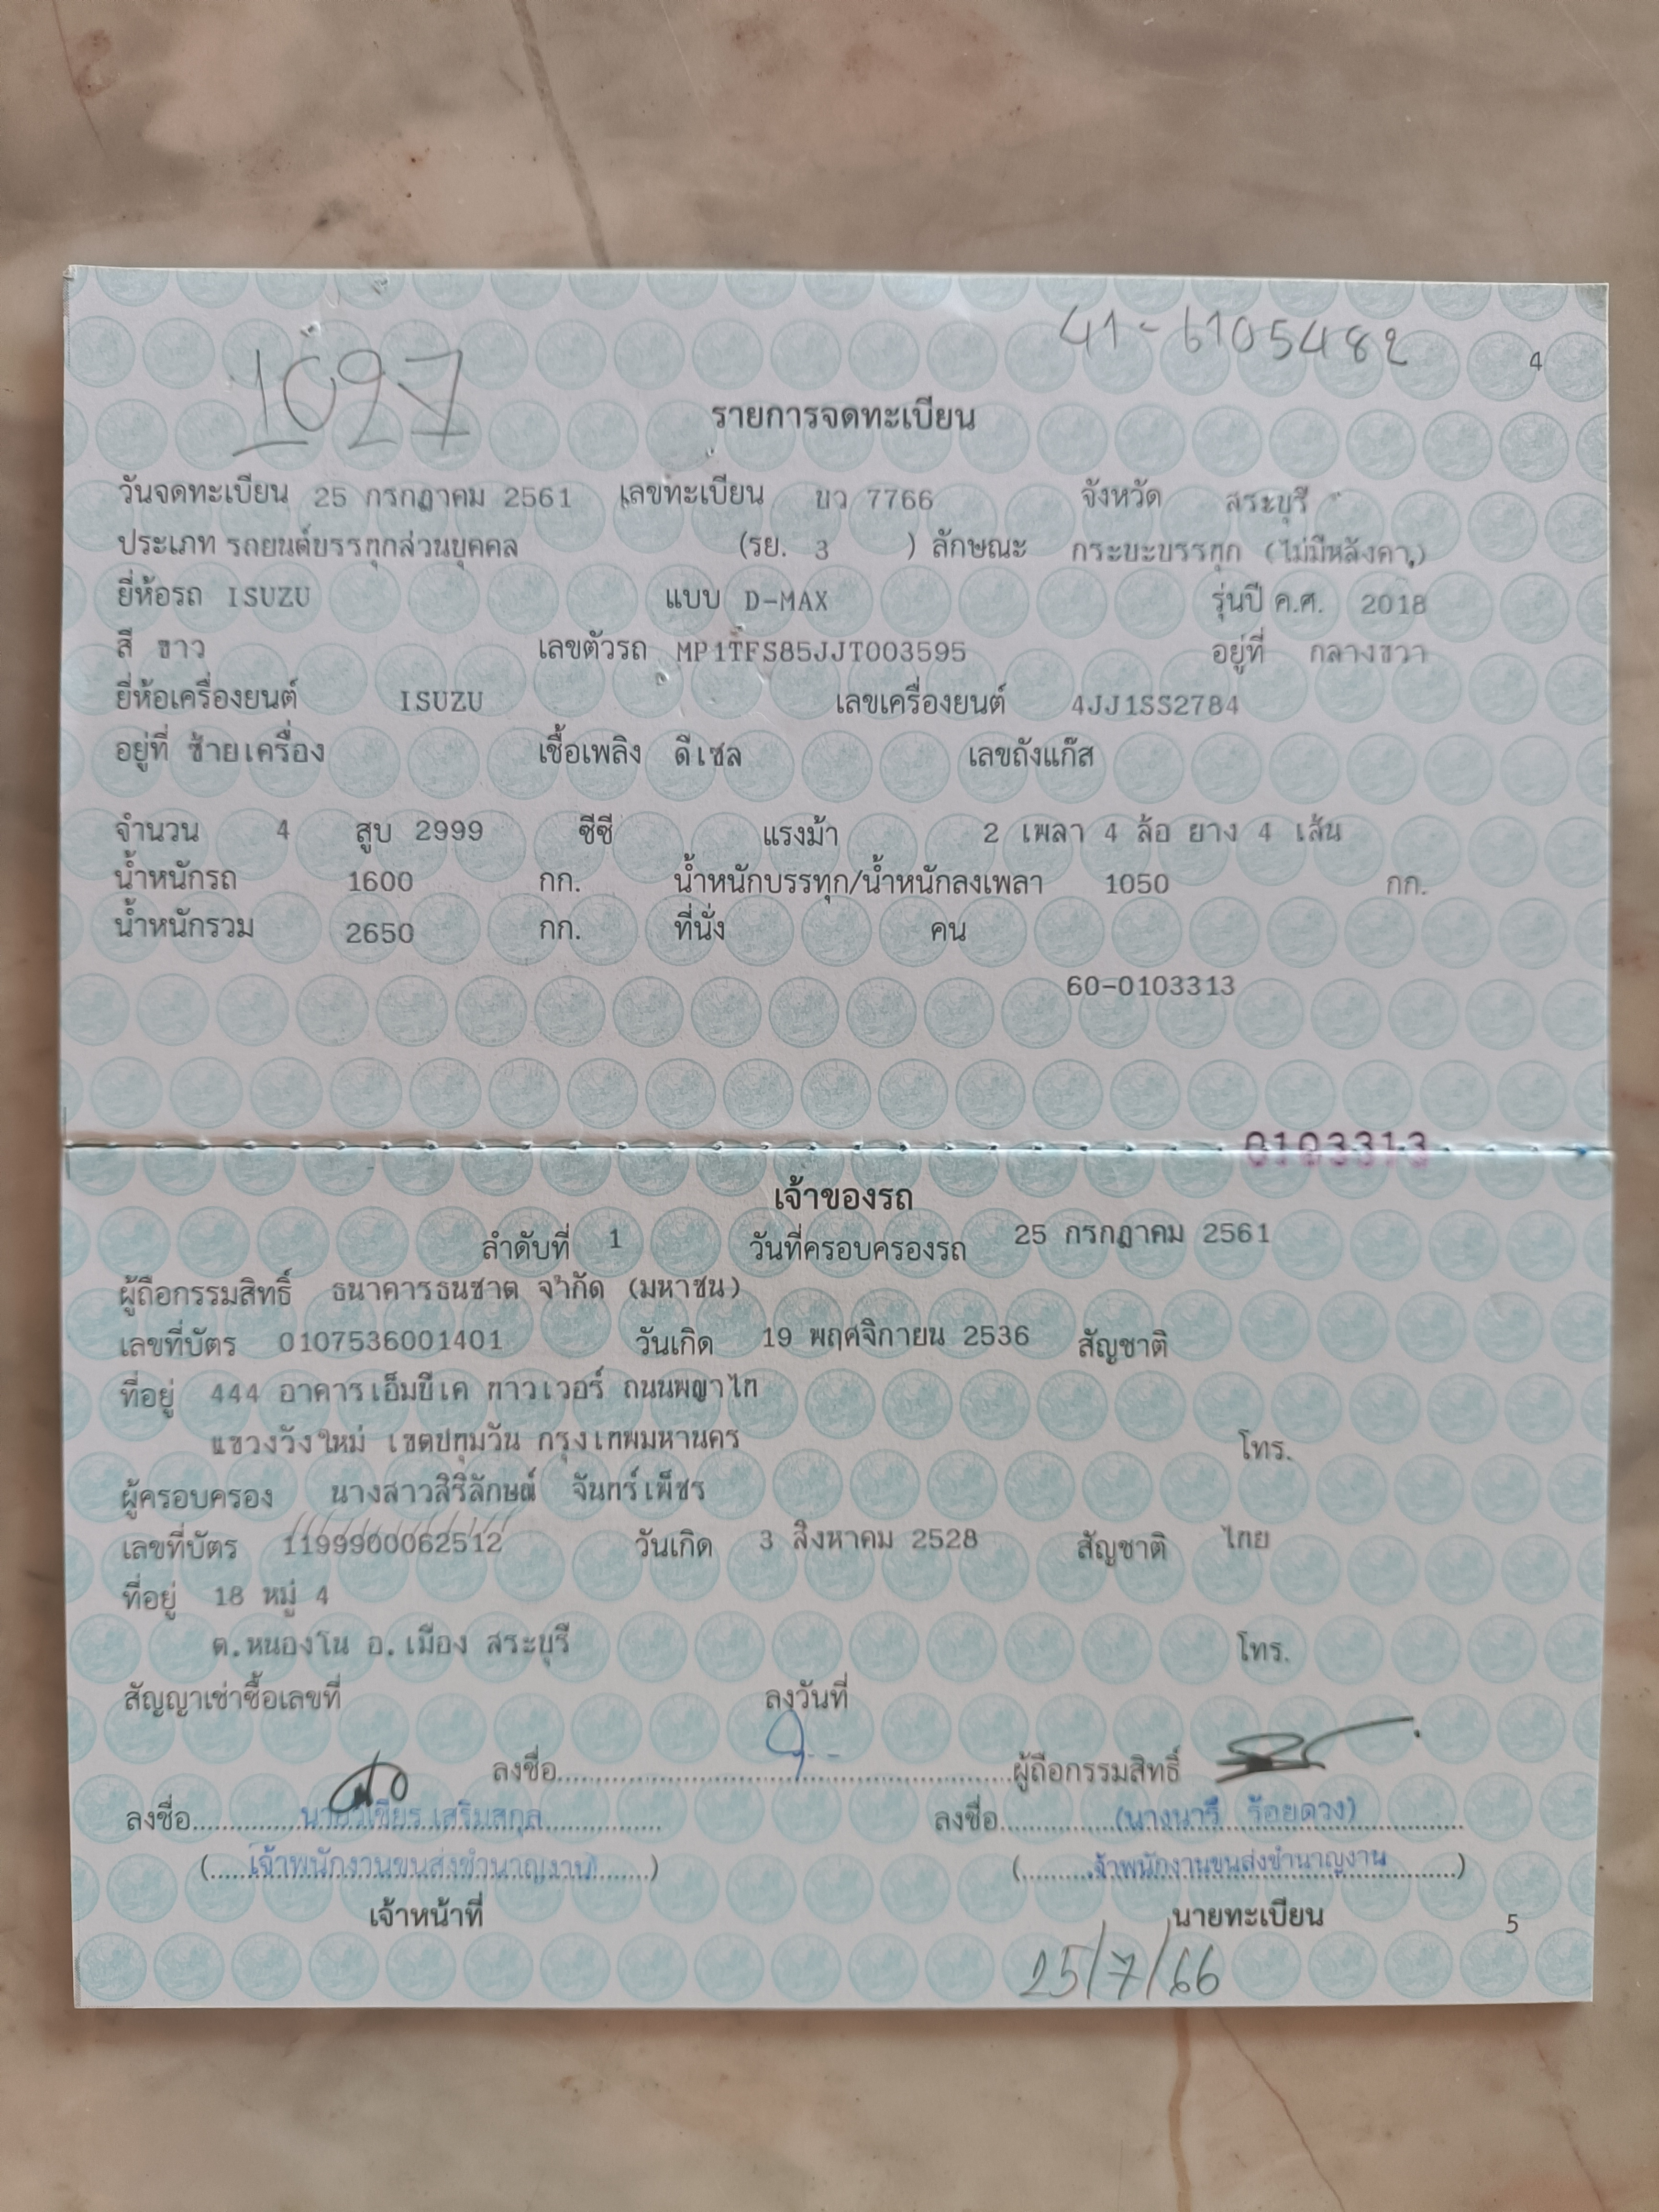 1027
41-6105482
4
รายการจดทะเบียน
วันจดทะเบียน 25 กรกฎาคม 2561 เลขทะเบียน บว 7766 จังหวัด สระบุรี
ประเภท รถยนต์บรรทุกส่วนบุคคล (รย. 3 ) ลักษณะ กระบะบรรทุก (ไม่มีหลังคา)
ยี่ห้อรถ ISUZU แบบ D-MAX รุ่นปี ค.ศ. 2018
สี ขาว เลขตัวรถ MP1TFS85JJT003595 อยู่ที่ กลางขวา
ยี่ห้อเครื่องยนต์ ISUZU เลขเครื่องยนต์ 4JJ1SS2784
อยู่ที่ ซ้ายเครื่อง เชื้อเพลิง ดีเซล เลขถังแก๊ส
จำนวน 4 สูบ 2999 ซีซี แรงม้า 2 เพลา 4 ล้อ ยาง 4 เส้น
น้ำหนักรถ 1600 กก. น้ำหนักบรรทุก/น้ำหนักลงเพลา 1050 กก.
น้ำหนักรวม 2650 กก. ที่นั่ง คน
60-0103313
0103313
เจ้าของรถ
ลำดับที่ 1 วันที่ครอบครองรถ 25 กรกฎาคม 2561
ผู้ถือกรรมสิทธิ์ ธนาคารธนชาต จำกัด (มหาชน)
เลขที่บัตร 0107536001401 วันเกิด 19 พฤศจิกายน 2536 สัญชาติ
ที่อยู่ 444 อาคารเอ็มบีเค ทาวเวอร์ ถนนพญาไท
แขวงวังใหม่ เขตปทุมวัน กรุงเทพมหานคร โทร.
ผู้ครอบครอง นางสาวสิริลักษณ์ จันทร์เพ็ชร
เลขที่บัตร 1199900062512 วันเกิด 3 สิงหาคม 2528 สัญชาติ ไทย
ที่อยู่ 18 หมู่ 4
ต.หนองโน อ.เมือง สระบุรี โทร.
สัญญาเช่าซื้อเลขที่ ลงวันที่
ลงชื่อ ผู้ถือกรรมสิทธิ์
ลงชื่อ นายวิเชียร เสริมสกุล ลงชื่อ (นางนารี ร้อยดวง)
(เจ้าพนักงานขนส่งชำนาญงาน) (จ้าพนักงานขนส่งชำนาญงาน)
เจ้าหน้าที่ นายทะเบียน
5
25/7/66